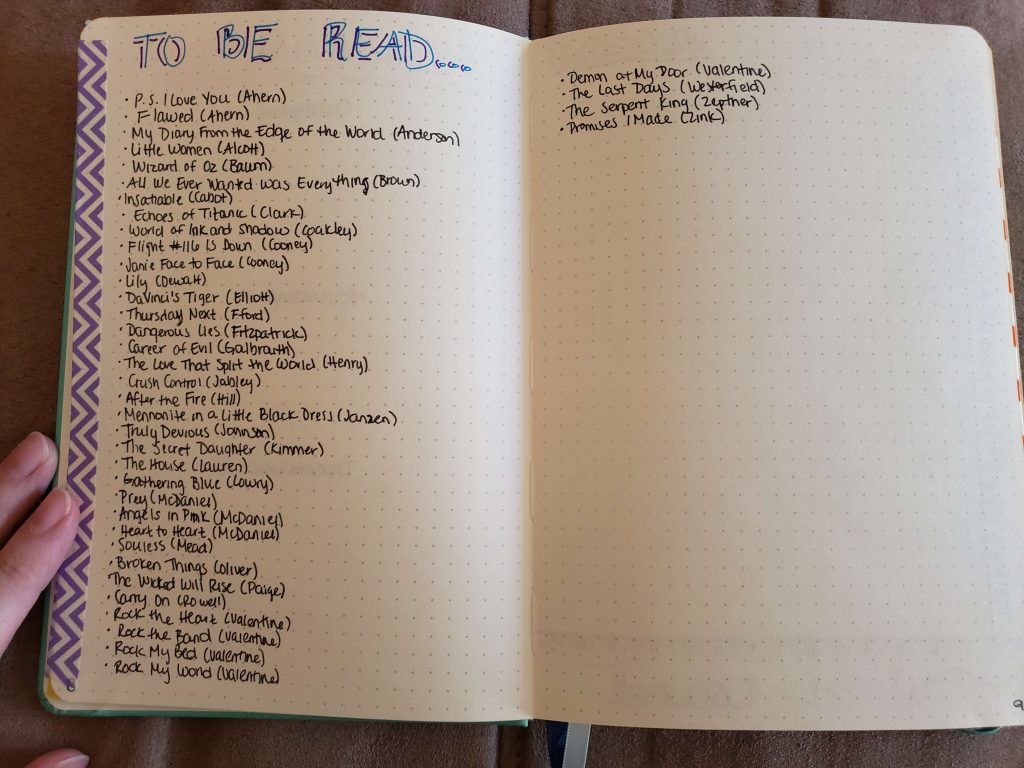 TO BE READ....
· P.S. I Love You (Ahern)
· Flawed (Ahern)
· My Diary From the Edge of the World (Anderson)
· Little Women (Alcott)
· Wizard of Oz (Baum)
· All We Ever Wanted Was Everything (Brown)
· Insatiable (Cabot)
· Echoes of Titanic (Clark)
· World of Ink and Shadow (Coakley)
· Flight #116 Is Down (Cooney)
· Janie Face to Face (Cooney)
· Lily (Dewalt)
· DaVinci's Tiger (Elliott)
· Thursday Next (Fford)
· Dangerous Lies (Fitzpatrick)
· Career of Evil (Galbraith)
· The Love That Split the World (Henry)
· Crush Control (Jabley)
· After the Fire (Hill)
· Mennonite in a Little Black Dress (Janzen)
· Truly Devious (Johnson)
· The Secret Daughter (Kimmer)
· The House (Lauren)
· Gathering Blue (Lowry)
· Prey (McDaniel)
· Angels in Pink (McDaniel)
· Heart to Heart (McDaniel)
· Souless (Mead)
· Broken Things (Oliver)
· The Wicked Will Rise (Paige)
· Carry On (Rowell)
· Rock the Heart (Valentine)
· Rock the Band (Valentine)
· Rock My Bed (Valentine)
· Rock My World (Valentine)
· Demon at My Door (Valentine)
· The Last Days (Westerfield)
· The Serpent King (Zepther)
· Promises I Made (Zink)
9